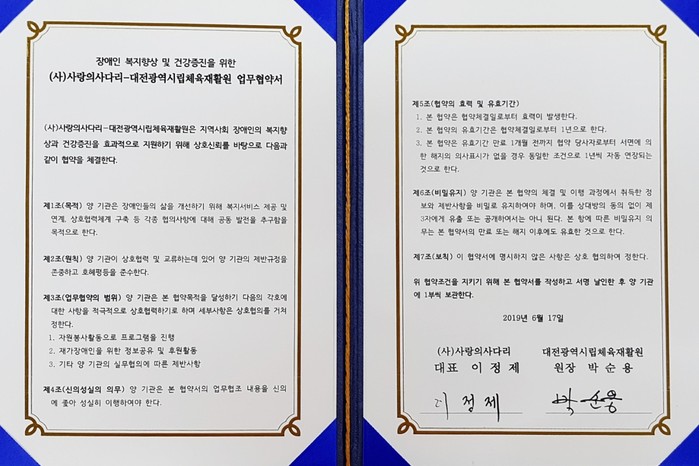 장애인 복지향상 및 건강증진을 위한
(사)사랑의사다리-대전광역시립체육재활원 업무협약서
(사)사랑의사다리-대전광역시립체육재활원은 지역사회 장애인의 복지향
상과 건강증진을 효과적으로 지원하기 위해 상호신뢰를 바탕으로 다음과
같이 협약을 체결한다.
제1조(목적) 양 기관은 장애인들의 삶을 개선하기 위해 복지서비스 제공 및
연계, 상호협력체계 구축 등 각종 협의사항에 대해 공동 발전을 추구함을
목적으로 한다.
제2조(원칙) 양 기관이 상호협력 및 교류하는데 있어 양 기관의 제반규정을
존중하고 호혜평등을 준수한다.
제3조(업무협약의 범위) 양 기관은 본 협약목적을 달성하기 다음의 각호에
대한 사항을 적극적으로 상호협력하기로 하며 세부사항은 상호협의를 거쳐
정한다.
1. 자원봉사활동으로 프로그램을 진행
2. 재가장애인을 위한 정보공유 및 후원활동
3. 기타 양 기관의 실무협의에 따른 제반사항
제4조(신의성실의 의무) 양 기관은 본 협약서의 업무협조 내용을 신의
에 좇아 성실히 이행하여야 한다.
제5조(협약의 효력 및 유효기간)
1. 본 협약은 협약체결일로부터 효력이 발생한다.
2. 본 협약의 유효기간은 협약체결일로부터 1년으로 한다.
3. 본 협약은 유효기간 만료 1개월 전까지 협약 당사자로부터 서면에 의
한 해지의 의사표시가 없을 경우 동일한 조건으로 1년씩 자동 연장되는
것으로 한다.
제6조(비밀유지) 양 기관은 본 협약의 체결 및 이행 과정에서 취득한 정
보와 제반사항을 비밀로 유지하여야 하며, 이를 상대방의 동의 없이 제
3자에게 유출 또는 공개하여서는 아니 된다. 본 항에 따른 비밀유지 의
무는 본 협약서의 만료 또는 해지 이후에도 유효한 것으로 한다.
제7조(보칙) 이 협약서에 명시하지 않은 사항은 상호 협의하여 정한다.
위 협약조건을 지키기 위해 본 협약서를 작성하고 서명 날인한 후 양 기관
에 1부씩 보관한다.
2019년 6월 17일
(사)사랑의사다리 대전광역시립체육재활원
대표 이정제 원장 박순용
이정제 박순용